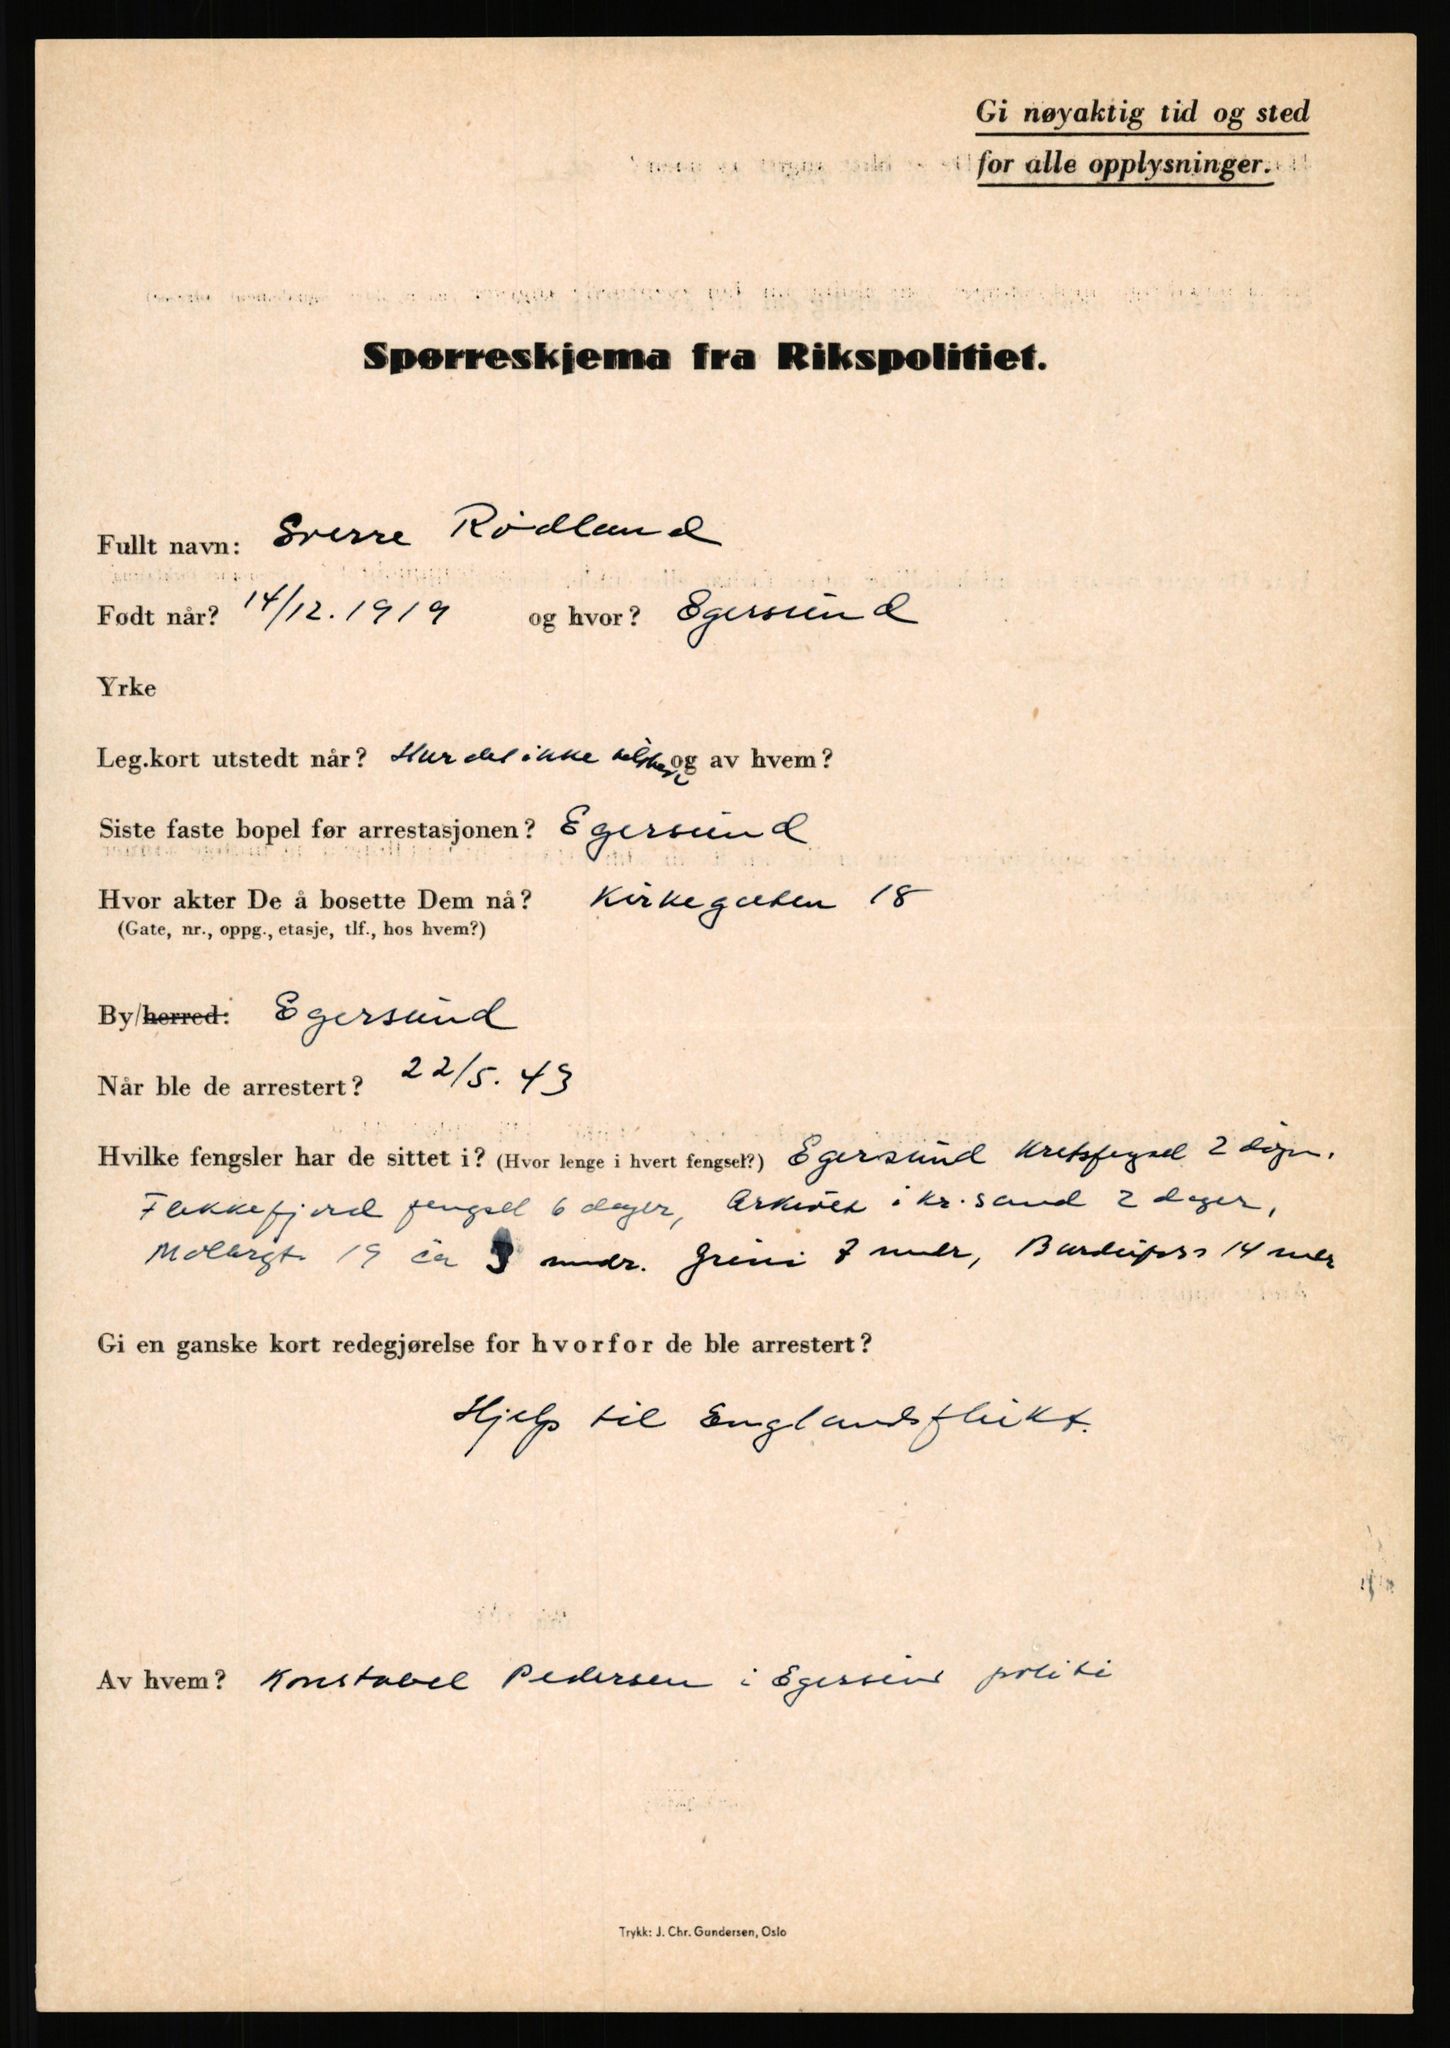 Gi nøyaktig tid og sted
for alle opplysninger.
Spørreskjema fra Rikspolitiet.
Fullt navn: Sverre Rødland
Født når? 14/12. 1919 og hvor? Egersund
Yrke
Leg.kort utstedt når? Har det ikke og av hvem?
Siste faste bopel før arrestasjonen? Egersund
Hvor akter De å bosette Dem nå? Kirkegaten 18
(Gate, nr., oppg., etasje, tlf., hos hvem?)
By/herred: Egersund
Når ble de arrestert? 22/5. 43
Hvilke fengsler har de sittet i? (Hvor lenge i hvert fengsel?) Egersund Kretsfengsel 2 døgn.
Flekkefjord fengsel 6 dager, Arkivet i Kr.sand 2 dager,
Møllergt. 19 ca mndr. Grini 7 mndr, Bardufoss 14 mndr
Gi en ganske kort redegjørelse for hvorfor de ble arrestert?
Hjelp til Englandsflukt.
Av hvem? Konstabel Pedersen i Egersund politi
Trykk: J. Chr. Gundersen, Oslo